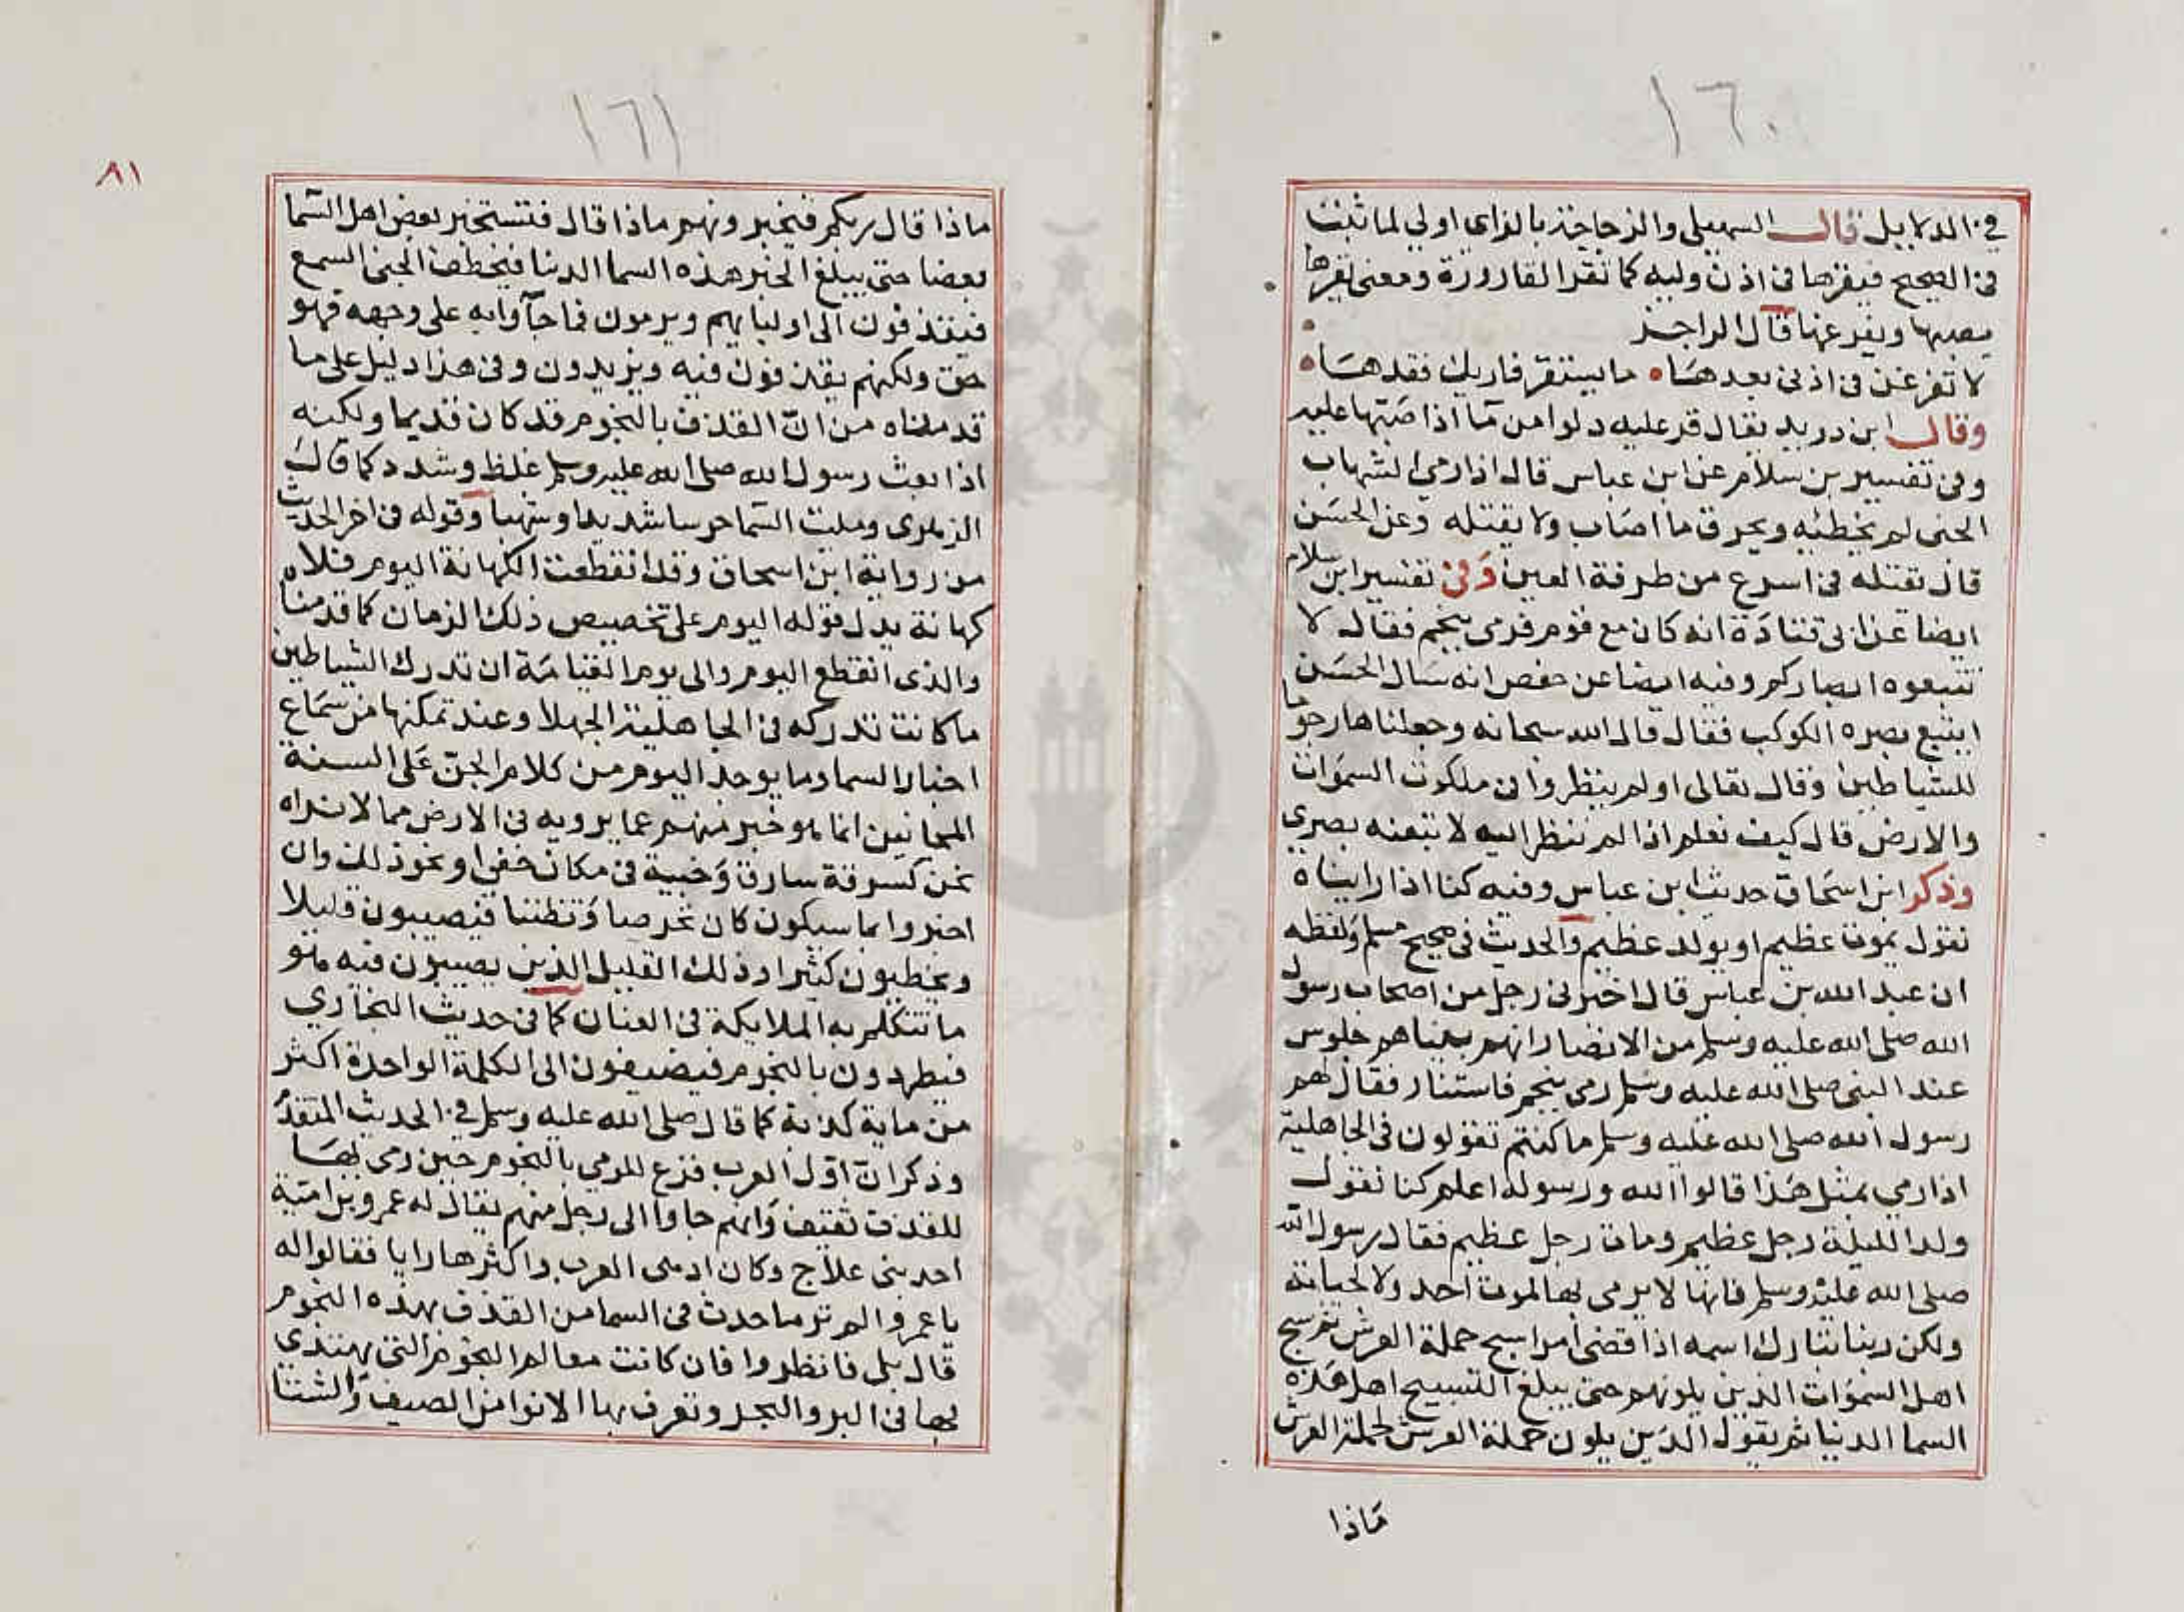 ١٦٠
في الدلايل قال السهيلى والزجاجة بالزاى اولي لما ثبت
فى الصحيح فيقرها فى اذن وليه كما تقر القارورة ومعنى يقرها
يصبها ويفرغها قال الراجز
لا تفرغن فى اذنى بعدها ما يستقر فاريك فقدها
وقال ابن دريد يقال قر عليه دلوا من ما اذا صبها عليه
وفى تفسير بن سلام عن ابن عباس قال اذا رمي الشهاب
الجنى لم يخطئه ويحرق ما اصاب ولا يقتله وعن الحسن
قال تقتله فى اسرع من طرفة العين وفى تفسير ابن سلام
ايضا عن ابى قتادة انه كان مع قوم فرمى بنجم فقال لا
تتبعوه ابصاركم وفيه ايضا عن حفص انه سال الحسن
ايتبع بصره الكوكب فقال قال الله سبحانه وجعلناها رجوما
للشياطين وقال تعالى اولم ينظروا فى ملكوت السموات
والارض قال كيف نعلم اذا لم ننظر اليه لا تبعنه بصري
وذكر ابن اسحاق حديث ابن عباس وفيه كنا اذا رايناه
نقول يموت عظيم او يولد عظيم والحديث فى صحيح مسلم ولفظه
ان عبد الله بن عباس قال اخبرنى رجل من اصحاب رسول
الله صلى الله عليه وسلم من الانصار انهم بيناهم جلوس
عند النبى صلى الله عليه وسلم رمى بنجم فاستنار فقال لهم
رسول الله صلى الله عليه وسلم ما كنتم تقولون فى الجاهلية
اذا رمي بمثل هذا قالوا الله ورسوله اعلم كنا نقول
ولد الليلة رجل عظيم ومات رجل عظيم فقال رسول الله
صلى الله عليه وسلم فانها لا يرمى بها لموت احد ولا لحياته
ولكن ربنا تبارك اسمه اذا قضى امرا سبح حملة العرش ثم سبح
اهل السموات الذين يلونهم حتى يبلغ التسبيح اهل هذه
السما الدنيا ثم يقول الذين يلون حملة العرش لحملة العرش
ماذا
١٦١
٨١
ماذا قال ربكم فيخبرونهم ماذا قال فتستخبر بعض اهل السما
بعضا حتى يبلغ الخبر هذه السما الدنيا فيخطف الجنى السمع
فيقذفون الى اوليايهم ويرمون فما جآوا به على وجهه فهو
حق ولكنهم يقذفون فيه ويزيدون وفى هذا دليل على ما
قدمناه من انّ القذف بالنجوم قد كان قديما ولكنه
اذا بعث رسول الله صلى الله عليه وسلم غلظ وشدد كما قال
الزهرى وملت السما حرسا شديدا وشهبا وقوله فى اخر الحديث
من رواية ابن اسحاق وقد انقطعت الكهانة اليوم فلا
كهانة يدل قوله اليوم على تخصيص ذلك الزمان كما قدمنا
والذى انقطع اليوم والى يوم القيامة ان تدرك الشياطين
ما كانت تدركه فى الجاهلية الجهلا وعند تمكنها من سماع
اخبار السما وما يوجد اليوم من كلام الجن على السنة
المجانين انما هو خبر منهم عما يرويه فى الارض مما لا نراه
نحن كسرقة سارق وخبية فى مكان خفى او نحو ذلك وان
اخبروا بما سيكون كان تخرصا وتظننا فيصيبون قليلا
ويخطيون كثيرا وذلك القليل الذين يصيبون فيه هو
ما تتكلم به الملايكة فى العنان كما فى حديث البخاري
فيطردون بالنجوم فيضيفون الى الكلمة الواحدة اكثر
من ماية كذبة كما قال صلى الله عليه وسلم في الحديث المتقدم
وذكر ان اول العرب فزع للرمي بالنجوم حين رمى بها
للقذف ثقيف وانهم جاوا الى رجل منهم يقال له عمرو بن امية
احد بنى علاج وكان ادهى العرب واكثرها رايا فقالوا له
يا عمرو الم تر ما حدث فى السما من القذف بهذه النجوم
قال بلى فانظروا فان كانت معالم النجوم التى يهتدى
بها فى البر والبحر وتعرف بها الانوا من الصيف والشتا